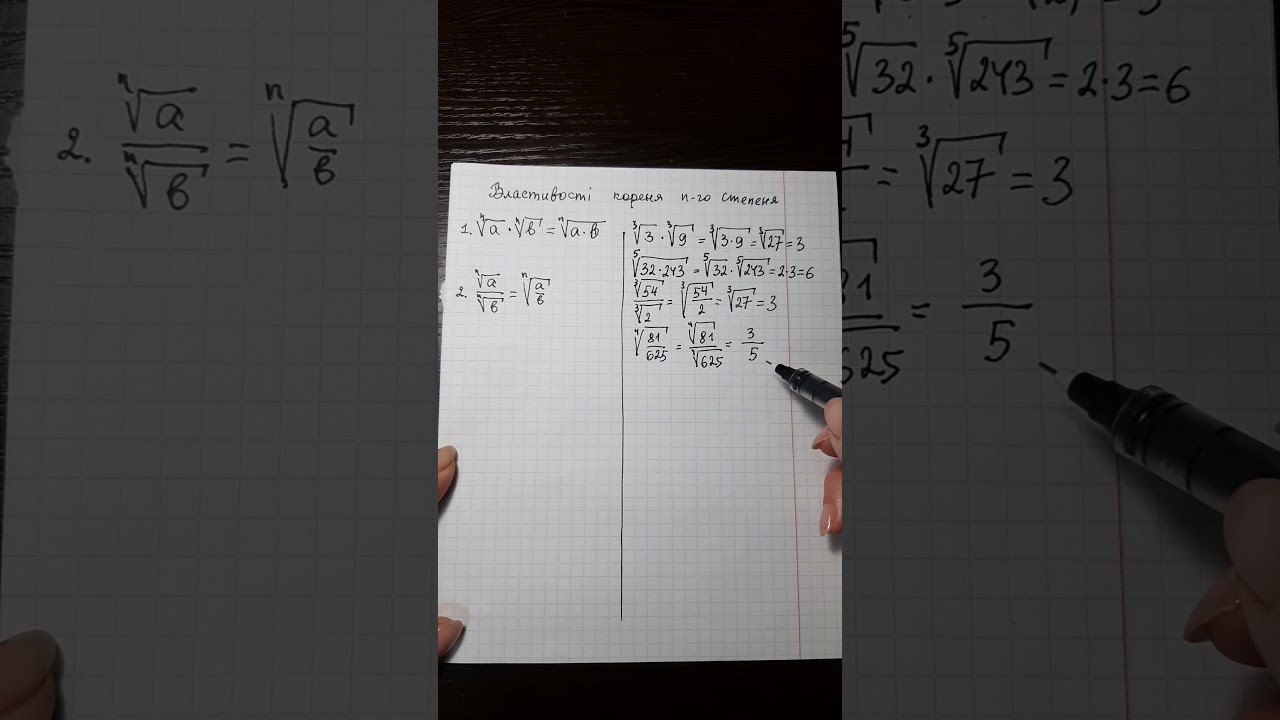 Властивості кореня n-го степеня
1. ⁿ√a · ⁿ√b = ⁿ√(a · b)
2. ⁿ√a / ⁿ√b = ⁿ√(a/b)
³√3 · ³√9 = ³√(3·9) = ³√27 = 3
⁵√(32·243) = ⁵√32 · ⁵√243 = 2·3 = 6
³√54 / ³√2 = ³√(54/2) = ³√27 = 3
⁴√(81/625) = ⁴√81 / ⁴√625 = 3/5